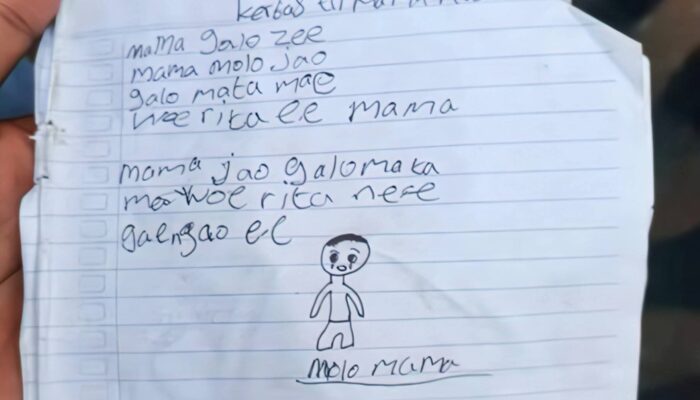 mama galo zee
mama molo jao
galo mata mae
woe rita ee mama
mama jao galo maka
woe rita nese
gaengao ee
molo mama